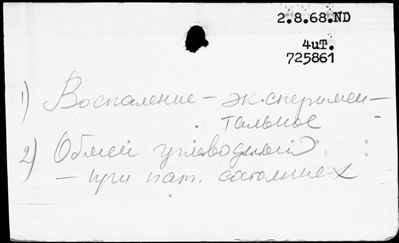 2.8.68.ND
4иТ.
725861
1) Воспаление – экспериmен-
тальное
2) Обмен углеводный
– при пат. сотояниех